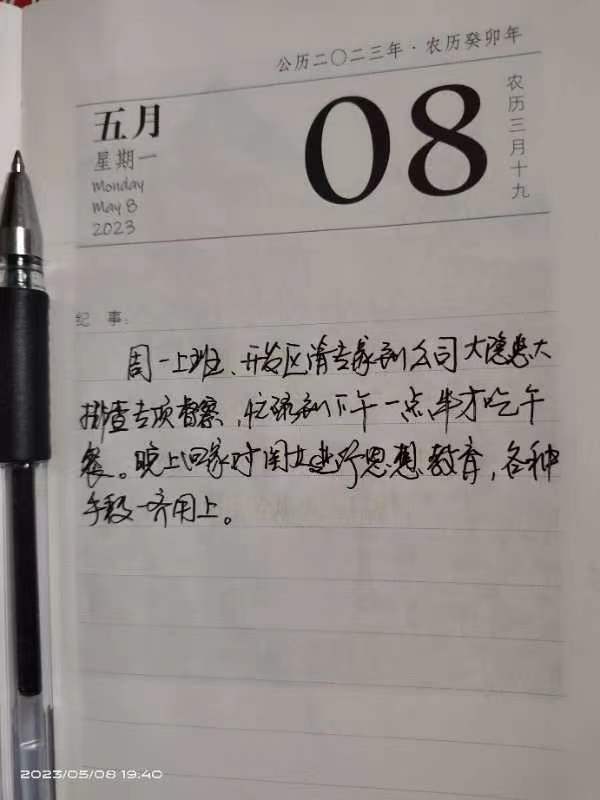 公历二〇二三年·农历癸卯年
五月
星期一
Monday
May 8
2023
08
农历三月十九
纪 事:
周一上班、开发区请专家到公司大隐患大
排查专项督察,忙碌到下午一点半才吃午
餐。晚上回家对闺女进行思想教育,各种
手段一齐用上。
2023/05/08 19:40